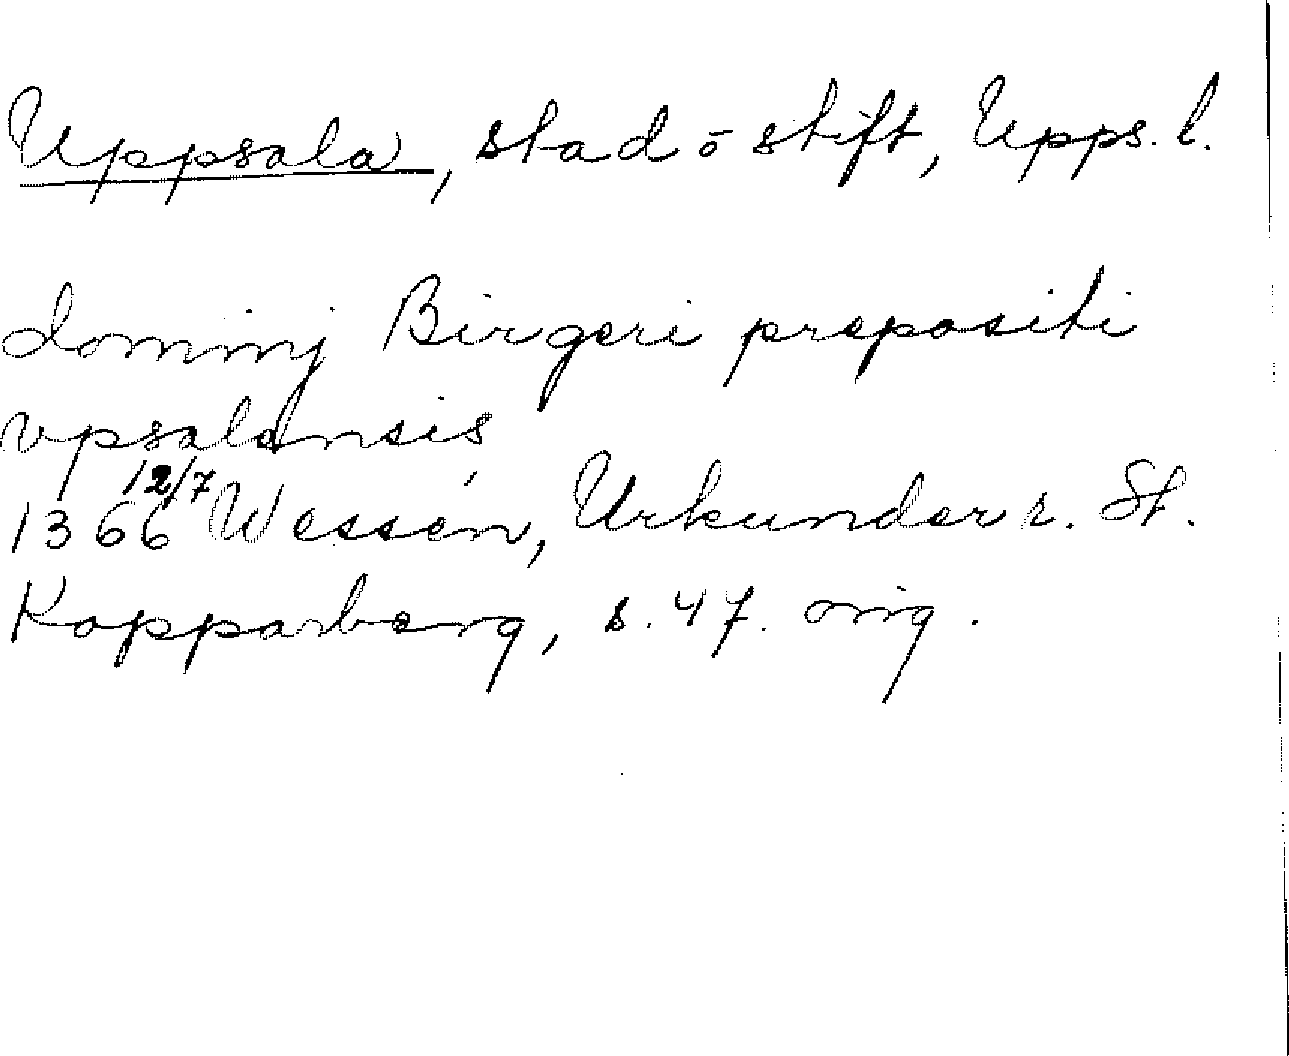 Uppsala, stad o stift, Upps. l.
dominj Birgeri prepositi
vpsalensis
12/7
1366 Wessén, Urkunder r. St.
Kopparberg, s. 47. orig.